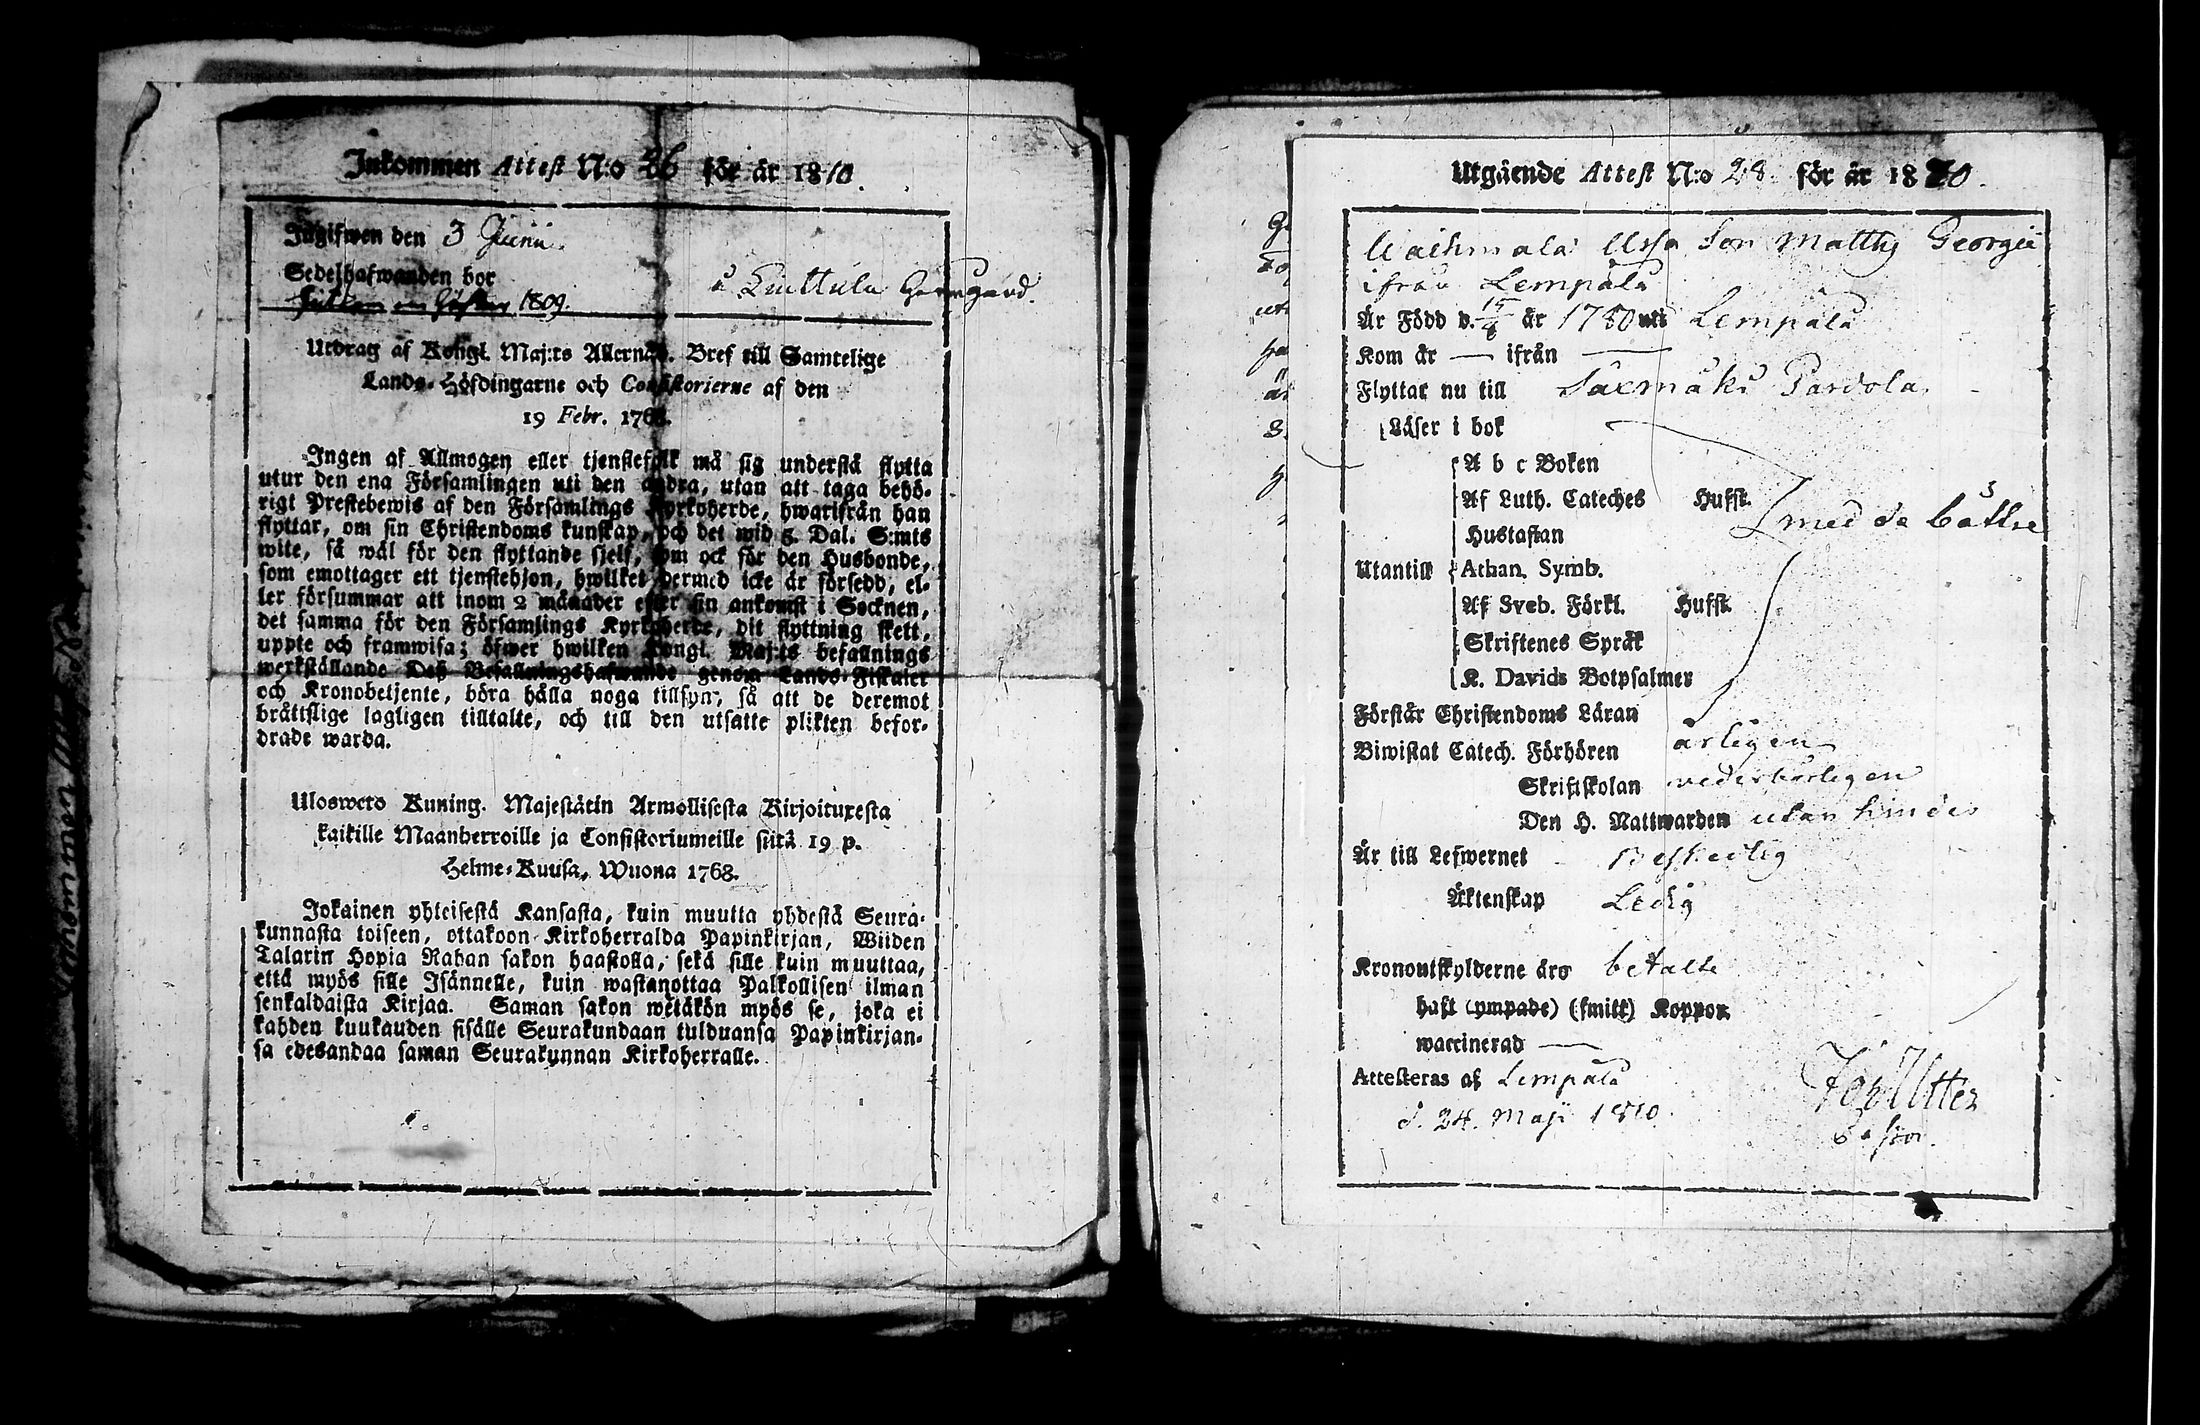 Inkommen Attest N:o 26 för år 1810.
Ingifwen den 3 Junii.
Sedelhafwanden bor
1809.
Utdrag af Kongl. Maj:ts Allernåd. Bref till Samtelige
Lands-Höfdingarne och Consistorierne af den
19 Febr. 1768.
Ingen af Allmogen eller tjenstefolk må sig understå flytta
utur den ena Församlingen uti den andra, utan att taga behö-
rigt Prestebewis af den Församlings Kyrkoherde, hwarifrån han
flyttar, om sin Christendoms kunskap, och det wid 5. Dal. S:mts
wite, så wäl för den flyttande sjelf, som ock för den Husbonde,
som emottager ett tjenstehjon, hwilket dermed icke är försedd, el-
ler försummar att inom 2 månader efter sin ankomst i Socknen,
det samma för den Församlings Kyrkoherde, dit flyttning skett,
uppte och framwisa; öfwer hwilken Kongl. Maj:ts befallnings
werkställande Deß Befallningshafwande genom Lands-Fiskaler
och Kronobetjente, böra hålla noga tillsyn, så att de deremot
bråttslige lagligen tilltalte, och till den utsatte plikten befor-
drade warda.
Uloswers Kuning. Majestätin Armollisesta Kirjoituxesta
kaikille Maanherroille ja Consistoriumeille siitä 19 p.
Helme-Kuusa, Wuona 1768.
Jokainen yhteisestä Kansasta, kuin muutta yhdestä Seura-
kunnasta toiseen, ottakoon Kirkoherralda Papinkirjan, Wiiden
Talarin Hopia Rahan sakon haastolla, sekä sille kuin muuttaa,
että myös sille Isännelle, kuin wastanottaa Palkollisen ilman
senkaldaista Kirjaa. Saman sakon wetäkön myös se, joka ei
kahden kuukauden sisälle Seurakundaan tulduansa Papinkirjan-
sa edesandaa saman Seurakunnan Kirkoherralle.
Utgående Attest N:o 28 för år 1810.
Son Matths Georgii
ifrån Lempälä
Är Född d. år 1780 uti Lempälä
Kom år — ifrån —
Flyttar nu till Säxmäki Pardola
Läser i bok
A b c Boken
Af Luth. Cateches Hufst.
med de bättre
Hustaflan
Utantill Athan. Symb.
Af Sveb. Förkl. Hufst.
Skriftenes Språk
K. Davids Botpsalmer
Förstår Christendoms Läran
Biwistat Catech. Förhören årligen
Skriftskolan vederbörligen
Den H. Nattwarden utan hinder
Är till Lefwernet Beskedlig
Äktenskap Ledig
Kronoutskylderne äro betalte
haft (ympade) (smitt) Koppor
waccinerad —
Attesteras af Lempälä
d. 24. Maji 1810.
Pastor.